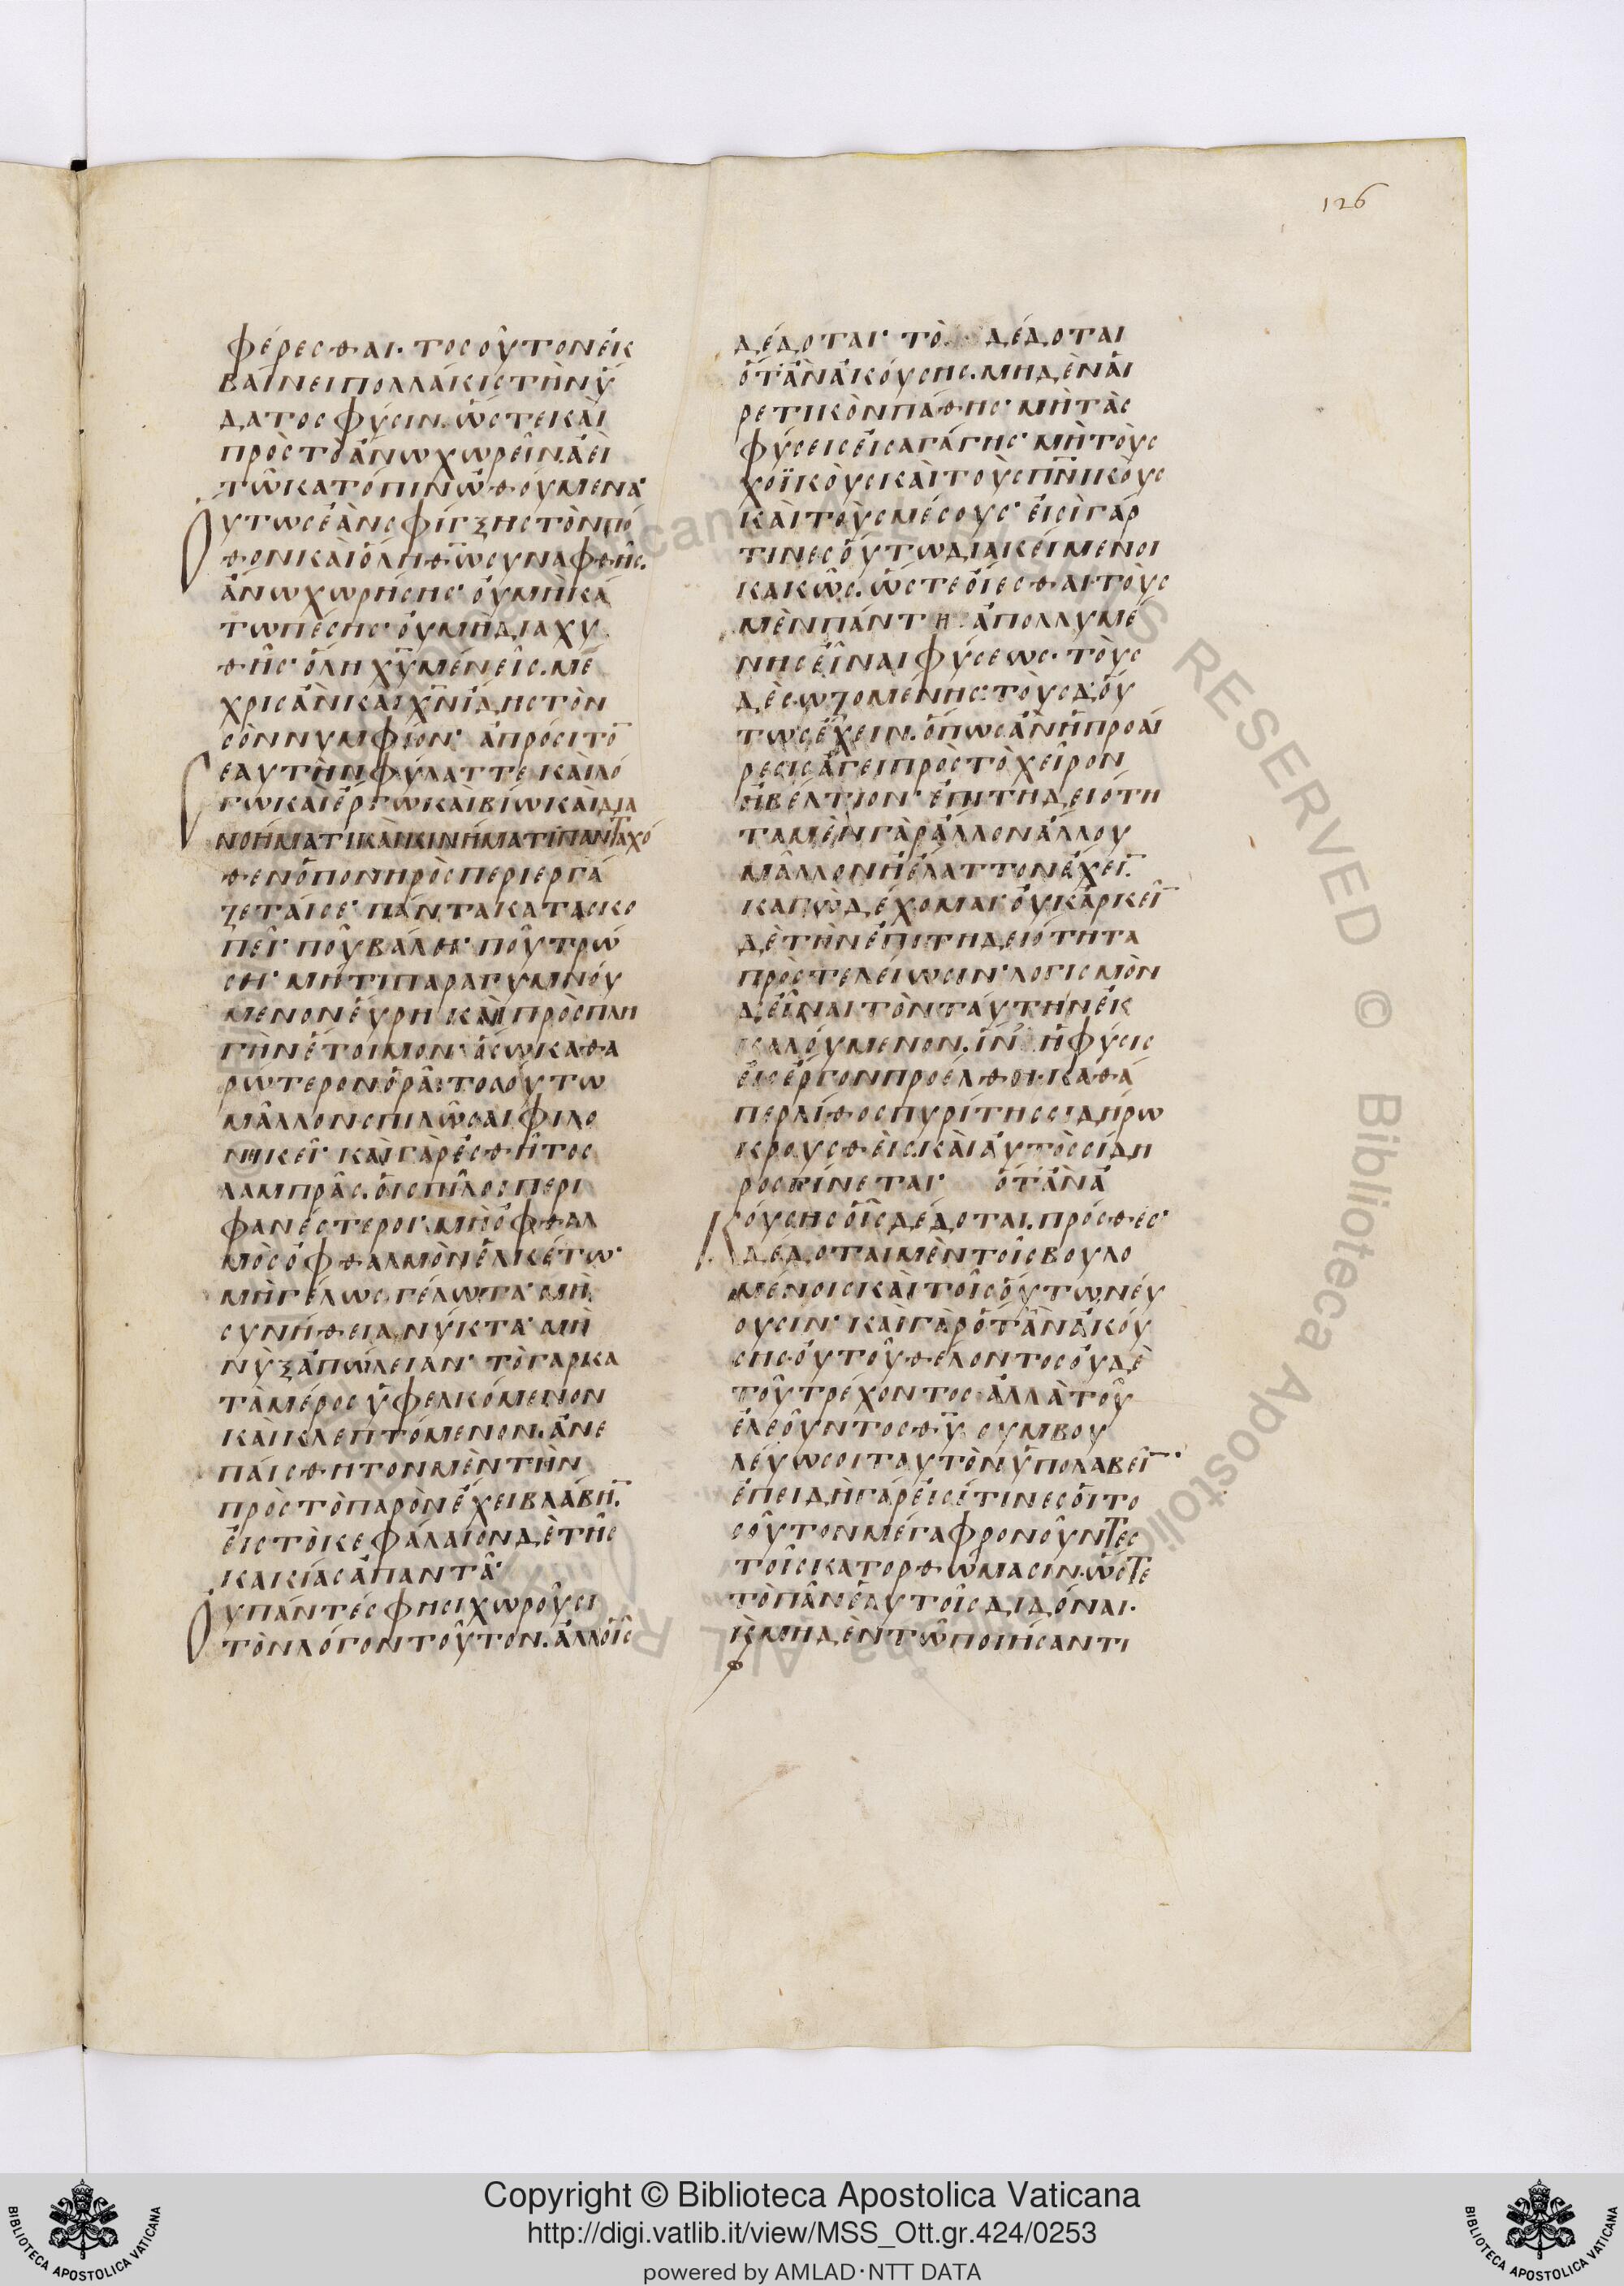 126
φέρεσθαι· τοσοῦτον ἐκ
βαίνει πολλάκις τὴν ὕ
δατος φύσιν. ὥστε καὶ
πρὸς τὸ ἄνω χωρεῖν. ἀεὶ
τῶ κατόπιν ὠθούμενα·
Ουτως ἐὰν σφίγξης τὸν πό
θον καὶ ὅλη θῶ συναφθῆς.
ἄνω χωρήσης· οὐ μὴ κά
τω πέσης· οὐ μὴ διαχυ
θῆς· ὅλη χῦ μενεῖς. μέ
χρις ἂν καὶ χν ἴδης τὸν
σὸν νυμφίον· ἀπρόσιτο
εαυτὴν φύλαττε. καὶ λό
γω καὶ ἔργω καὶ βίω καὶ δια
νοήματι καὶ κινήματι πανταχό
θεν ὁ πονηρὸς περιεργά
ζεταί σε· πάντα κατασκο
πεῖ· ποῦ βάλη· ποῦ τρώ
ση· μή τι παραγυμνού
μενον εὕρη καὶ πρὸς πλη
γὴν ἕτοιμον· ὅσω καθα
ρώτερον ὁρᾶ· τοσούτω
μᾶλλον σπιλῶσαι φιλο
νεικεῖ· καὶ γὰρ ἐσθῆτος
λαμπρᾶς. οἱ σπῖλοι περι
φανέστεροι· μὴ ὀφθαλ
μὸς ὀφθαλμὸν ἑλκέτω·
μὴ γέλως γέλωτα· μὴ
συνήθεια νύκτα· μὴ
νὺξ ἀπώλειαν· τὸ γαρ κα
τὰ μέρος ὑφελκόμενον
καὶ κλεπτόμενον. ἀνε
παίσθητον μὲν τὴν
πρὸς τὸ παρὸν ἔχει βλάβη.
εἰς τὸ κεφάλαιον δὲ τῆς
κακίας ἀπαντᾶ·
Ου πάντες φησι χωροῦσι
τὸν λόγον τοῦτον. ἀλλ' οἷς
δέδοται· τὸ δέδοται
ὅτ' ἂν ἀκούσης. μηδὲν αἱ
ρετικὸν πάθης· μὴ τὰς
φύσεις εἰσαγάγης· μὴ τοὺς
χοϊκοὺς καὶ τοὺς πνικοὺς
καὶ τοὺς μέσους· εἰσὶ γάρ
τινες οὕτω διακείμενοι
κακῶς. ὥστε οἴεσθαι τοὺς
μὲν πάντη ἀπολλυμέ
νης εἶναι φύσεως· τοὺς
δὲ σωζομένης· τοὺς δ' οὕ
τως ἔχειν. ὅπως ἂν ἡ προαί
ρεσις ἄγει πρὸς τὸ χεῖρον
ἢ βέλτιον· ἐπιτηδειότη
τα μὲν γὰρ ἄλλον ἄλλου
μᾶλλον ἢ ἔλαττον ἔχει.
καγὼ δέχομαι· οὐκ ἀρκεῖ
δὲ τὴν ἐπιτηδειότητα
πρὸς τελείωσιν· λογισμὸν
δ' εἶναι τὸν ταύτην ἐκ
καλούμενον. ἵν' ἡ φύσις
εἰς ἔργον προέλθοι· καθά
περ λίθος πυρίτης σιδήρω
κρουσθεὶς. καὶ αὐτὸς σίδη
ρος γίνεται· ὅτ' ἂν ἀ
Κούσης οἷς δέδοται. πρόσθες·
δέδοται μὲν τοῖς βουλο
μένοις καὶ τοῖς οὕτω νεύ
ουσιν· καὶ γὰρ ὅτ' ἂν ἀκού
σης· οὐ τοῦ θέλοντος οὐδὲ
τοῦ τρέχοντος ἀλλὰ τοῦ
ἐλεοῦντος θῦ. συμβου
λεύω σοι ταυτὸν ὑπολαβεῖ·
ἐπειδὴ γάρ εἰσί τινες οἱ το
σοῦτον μέγα φρονοῦντες
τοῖς κατορθώμασιν. ὥστε
τὸ πᾶν ἑαυτοῖς διδόναι.
κ μηδὲν τῶ ποιήσαντι
Copyright © Biblioteca Apostolica Vaticana
http://digi.vatlib.it/view/MSS_Ott.gr.424/0253
powered by AMLAD·NTT DATA
BIBLIOTECA APOSTOLICA VATICANA
BIBLIOTECA APOSTOLICA VATICANA